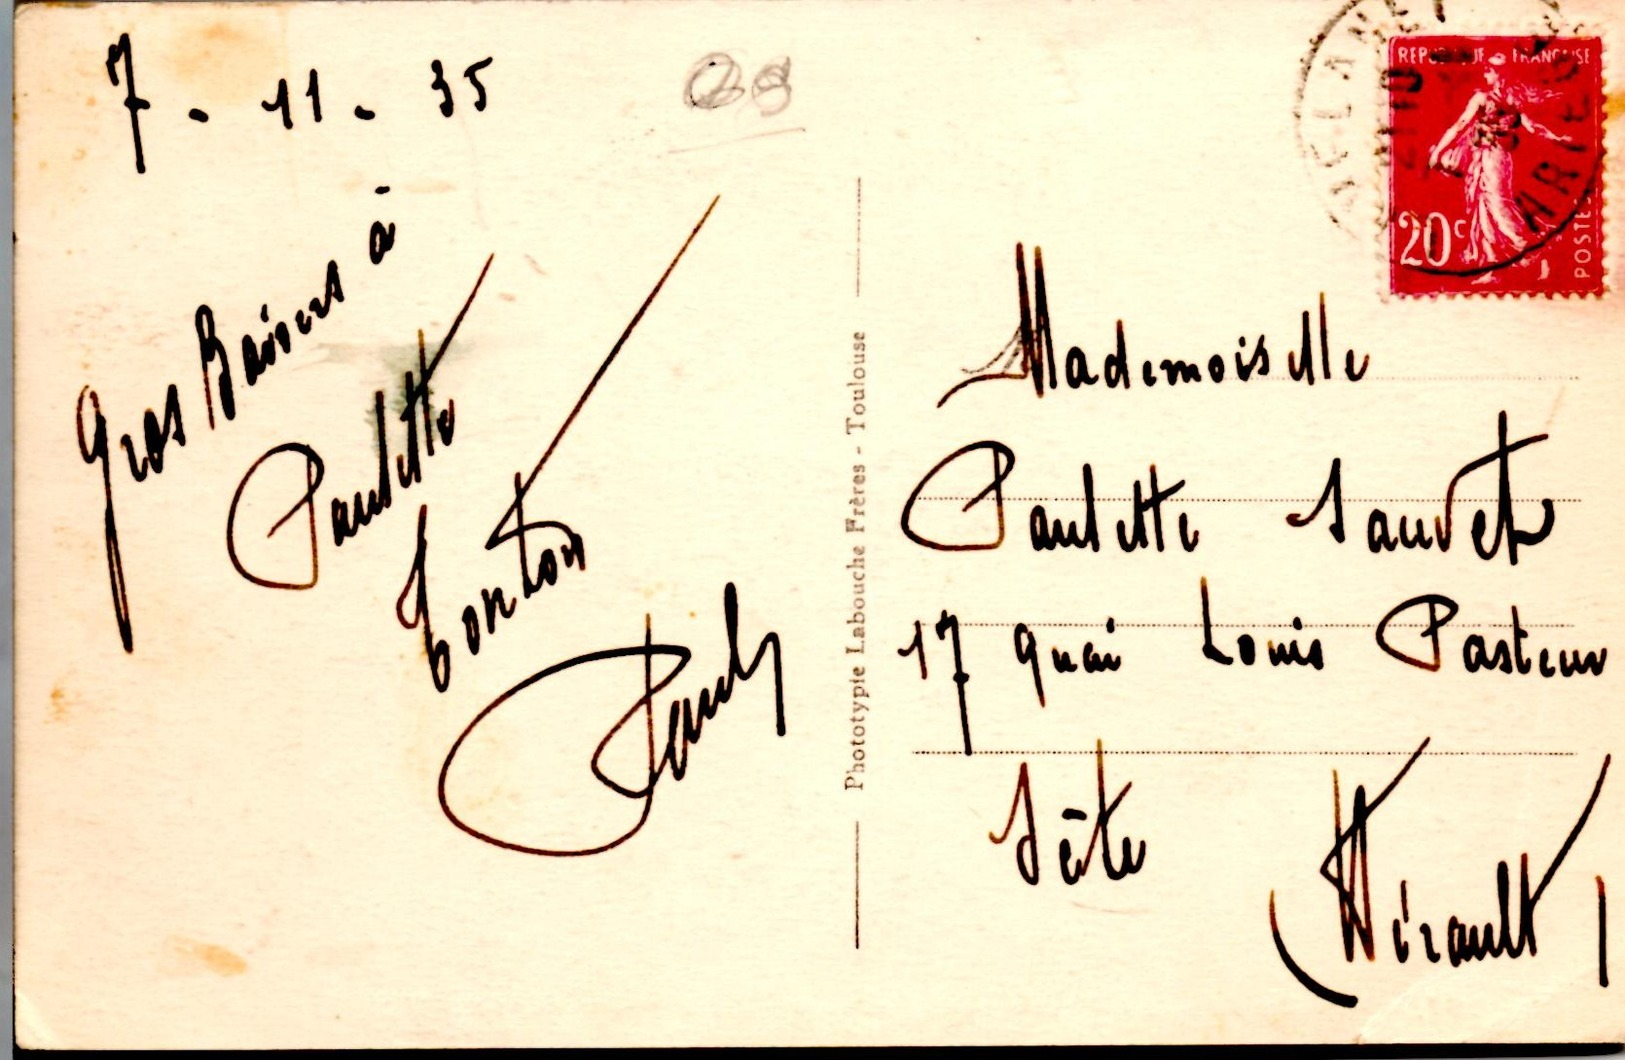 7 - 11 - 35
Gros Baisers à
Paulette
Tonton
Paul
Phototypie Labouche Frères - Toulouse
REPUBLIQUE FRANÇAISE
20c
POSTES
Mademoiselle
Paulette Sauvet
17 quai Louis Pasteur
Sète
(Hérault)